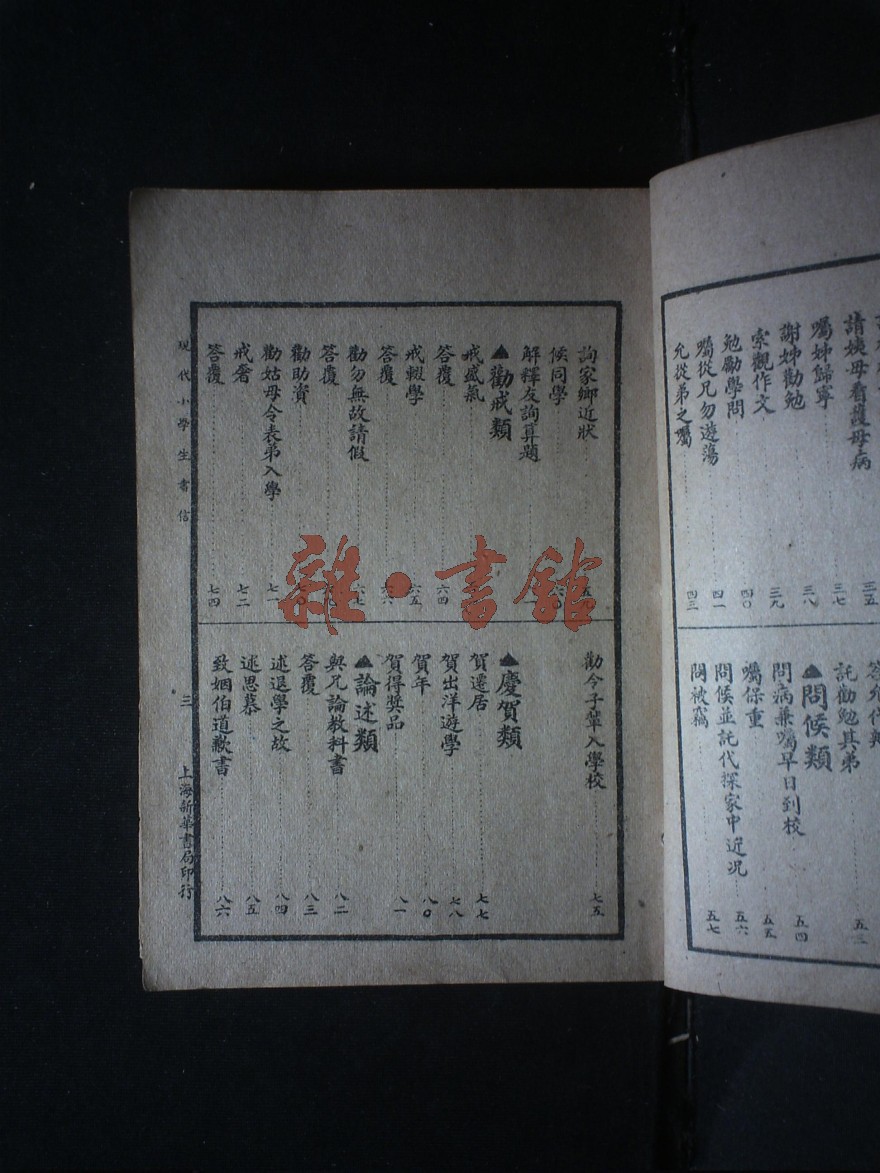 請姨母看護母病 三五
囑姊歸寧 三七
謝姊勸勉 三八
索觀作文 三九
勉勵學問 四〇
囑從兄勿遊蕩 四一
允從弟之囑 四三
託勸勉其弟 五三
▲問候類
問病兼囑早日到校 五四
囑保重 五五
問候並託代探家中近况 五六
問被竊 五七
詢家鄉近狀
候同學
解釋友詢算題
▲勸戒類
戒盛氣
答覆 六四
戒輟學 六五
答覆 六六
勸勿無故請假 六七
答覆
勸助資
勸姑母令表弟入學 七一
戒奢 七二
答覆 七四
勸令子輩入學校 七五
▲慶賀類
賀遷居 七七
賀出洋遊學 七八
賀年 八〇
賀得奬品 八一
▲論述類
與兄論教科書 八二
答覆 八三
述退學之故 八四
述思慕 八五
致姻伯道歉書 八六
現代小學生書信
三
上海新華書局印行
雜·書館